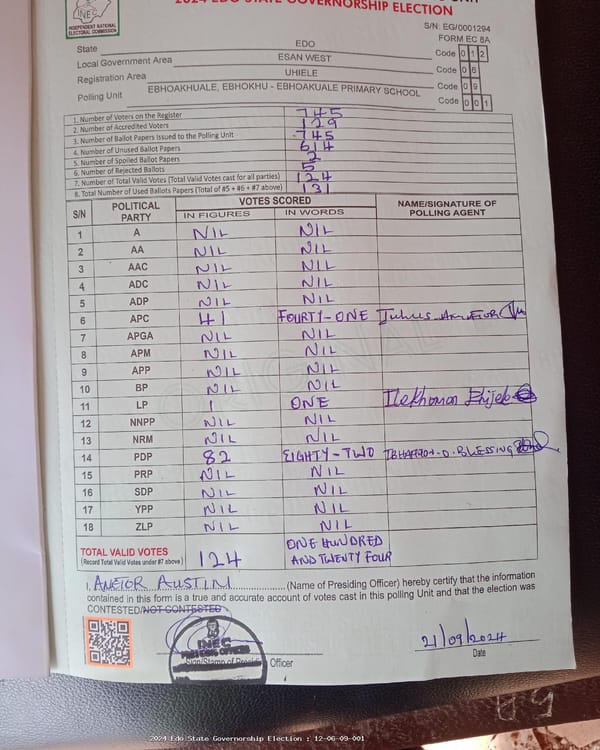 2024 EDO STATE GOVERNORSHIP ELECTION
INEC
INDEPENDENT NATIONAL ELECTORAL COMMISSION
S/N: EG/0001294
FORM EC 8A
State EDO Code 012
Local Government Area ESAN WEST Code 06
Registration Area UHIELE Code 09
Polling Unit EBHOAKHUALE, EBHOKHU - EBHOAKUALE PRIMARY SCHOOL Code 001
1. Number of Voters on the Register 745
2. Number of Accredited Voters 129
3. Number of Ballot Papers Issued to the Polling Unit 745
4. Number of Unused Ballot Papers 614
5. Number of Spoiled Ballot Papers 2
6. Number of Rejected Ballots 5
7. Number of Total Valid Votes (Total Valid Votes cast for all parties) 124
8. Total Number of Used Ballots Papers (Total of #5 + #6 + #7 above) 131
S/N POLITICAL PARTY VOTES SCORED NAME/SIGNATURE OF POLLING AGENT
IN FIGURES IN WORDS
1 A NIL NIL
2 AA NIL NIL
3 AAC NIL NIL
4 ADC NIL NIL
5 ADP NIL NIL
6 APC 41 FOURTY-ONE
7 APGA NIL NIL
8 APM NIL NIL
9 APP NIL NIL
10 BP NIL NIL
11 LP 1 ONE
12 NNPP NIL NIL
13 NRM NIL NIL
14 PDP 82 EIGHTY-TWO BLESSING
15 PRP NIL NIL
16 SDP NIL NIL
17 YPP NIL NIL
18 ZLP NIL NIL
TOTAL VALID VOTES 124 ONE HUNDRED AND TWENTY FOUR
(Record Total Valid Votes under #7 above)
I, ANETOR AUSTIN (Name of Presiding Officer) hereby certify that the information
contained in this form is a true and accurate account of votes cast in this polling Unit and that the election was
CONTESTED/NOT CONTESTED
INEC
Sign/Stamp of Presiding Officer
21/09/2024
Date
2024 Edo State Governorship Election : 12-06-09-001